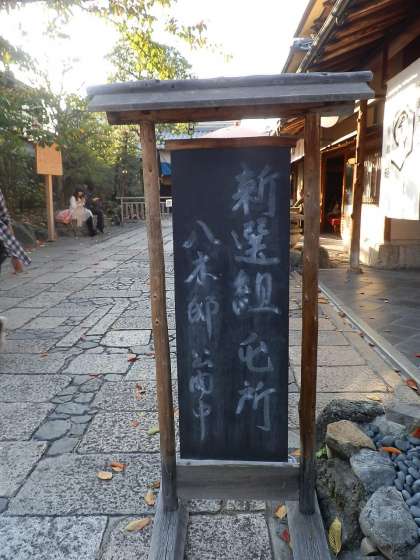 新選組屯所
八木邸公開中